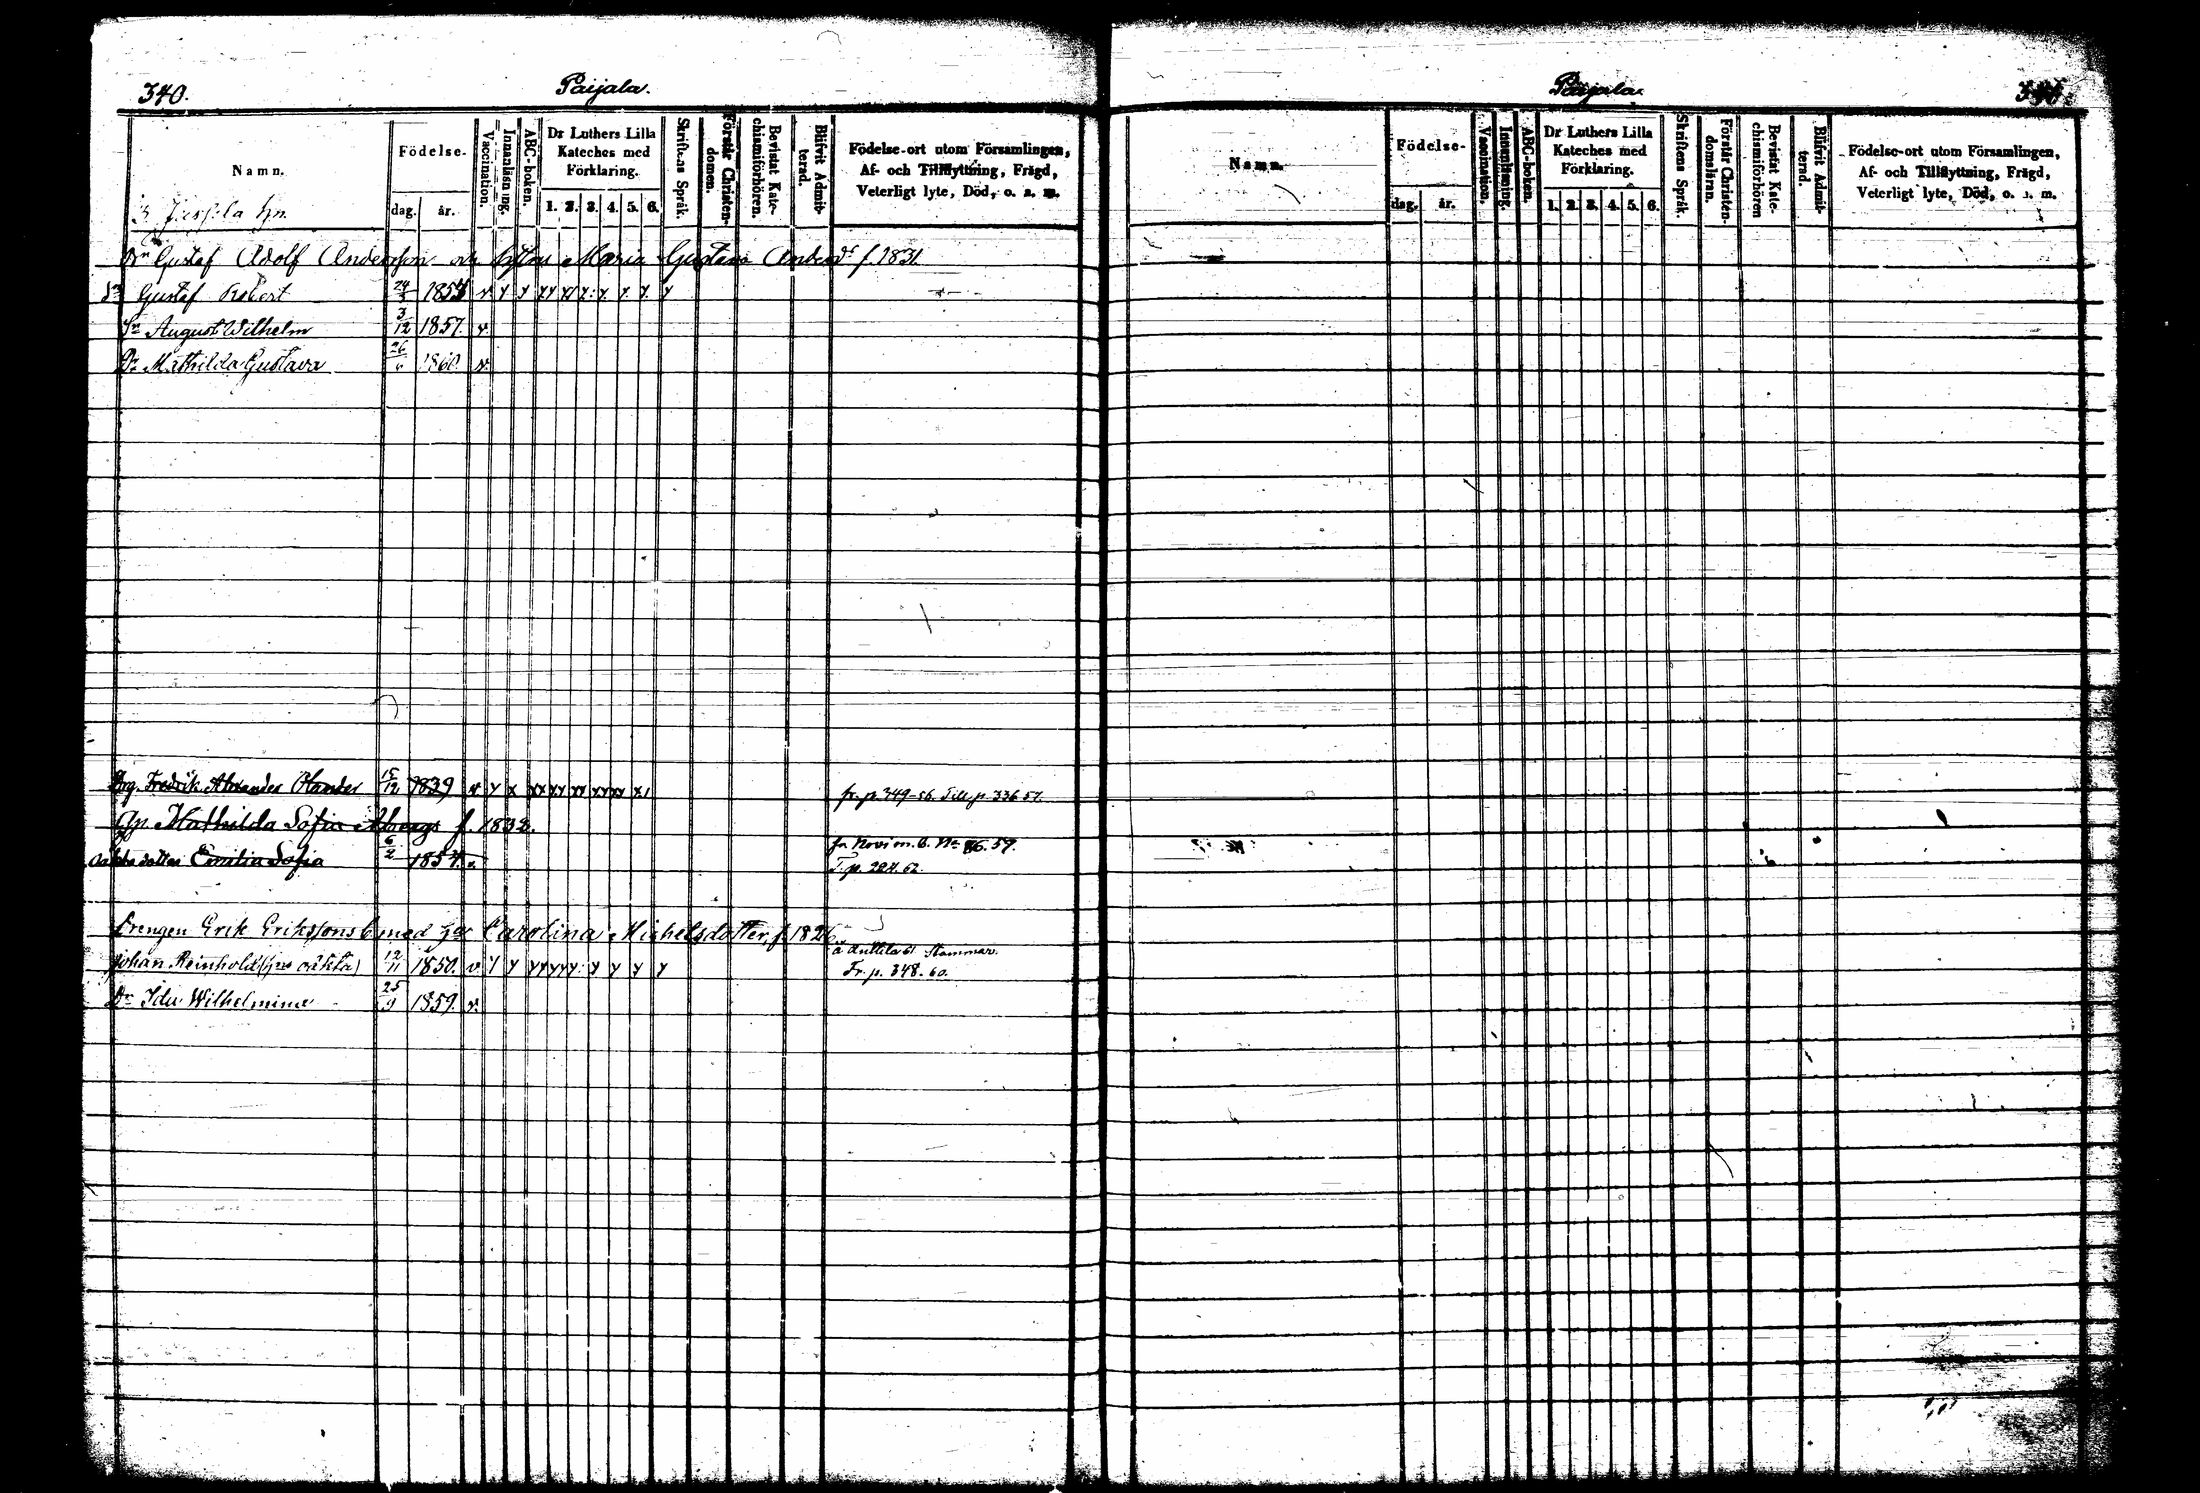 340.
Päijala.
Namn.
Födelse-
dag.
år.
Vaccination.
Innanläsning.
ABC-boken.
Dr Luthers Lilla
Kateches med
Förklaring.
1. 2. 3. 4. 5. 6.
Skriftens Språk.
Förstår Christen-
domen.
Bevistat Kate-
chismiförhören.
Blifvit Admit-
terad.
Födelse-ort utom Församlingen,
Af- och Tillflyttning, Frägd,
Veterligt lyte, Död, o. s. m.
Gustaf Adolf Andersson och Maria Gustava Andersdr f. 1831.
Sn Gustaf Robert 24/5 185 v y y
Sn August Wilhelm 3/12 1857. v.
Dr Mathilda Gustava 26/6 1860. v.
Drg. Fredrik Alexander Olander 15/12 1839 v y x fr. p. 349-56. Till p. 336 57.
Mathilda Sofia f. 1832.
fr. No 86. 59.
oäkta dotter Emilia Sofia 6/2 1857. v.
T. p. 284. 62.
Drengen Erik Erikssons med Carolina Michelsdotter, f. 1826.
å Anttila 61 Stammar.
Johan Reinhold (oäkta) 12/11 1850. v y y Fr. p. 348. 60.
Dr Ida Wilhelmina 25/9 1859. v.
Päijala.
Namn.
Födelse-
dag. år.
Vaccination.
Innanläsning.
ABC-boken.
Dr Luthers Lilla
Kateches med
Förklaring.
1. 2. 3. 4. 5. 6.
Skriftens Språk.
Förstår Christen-
domsläran.
Bevistat Kate-
chismiförhören
Blifvit Admit-
terad.
Födelse-ort utom Församlingen,
Af- och Tillflyttning, Frägd,
Veterligt lyte, Död, o. s. m.